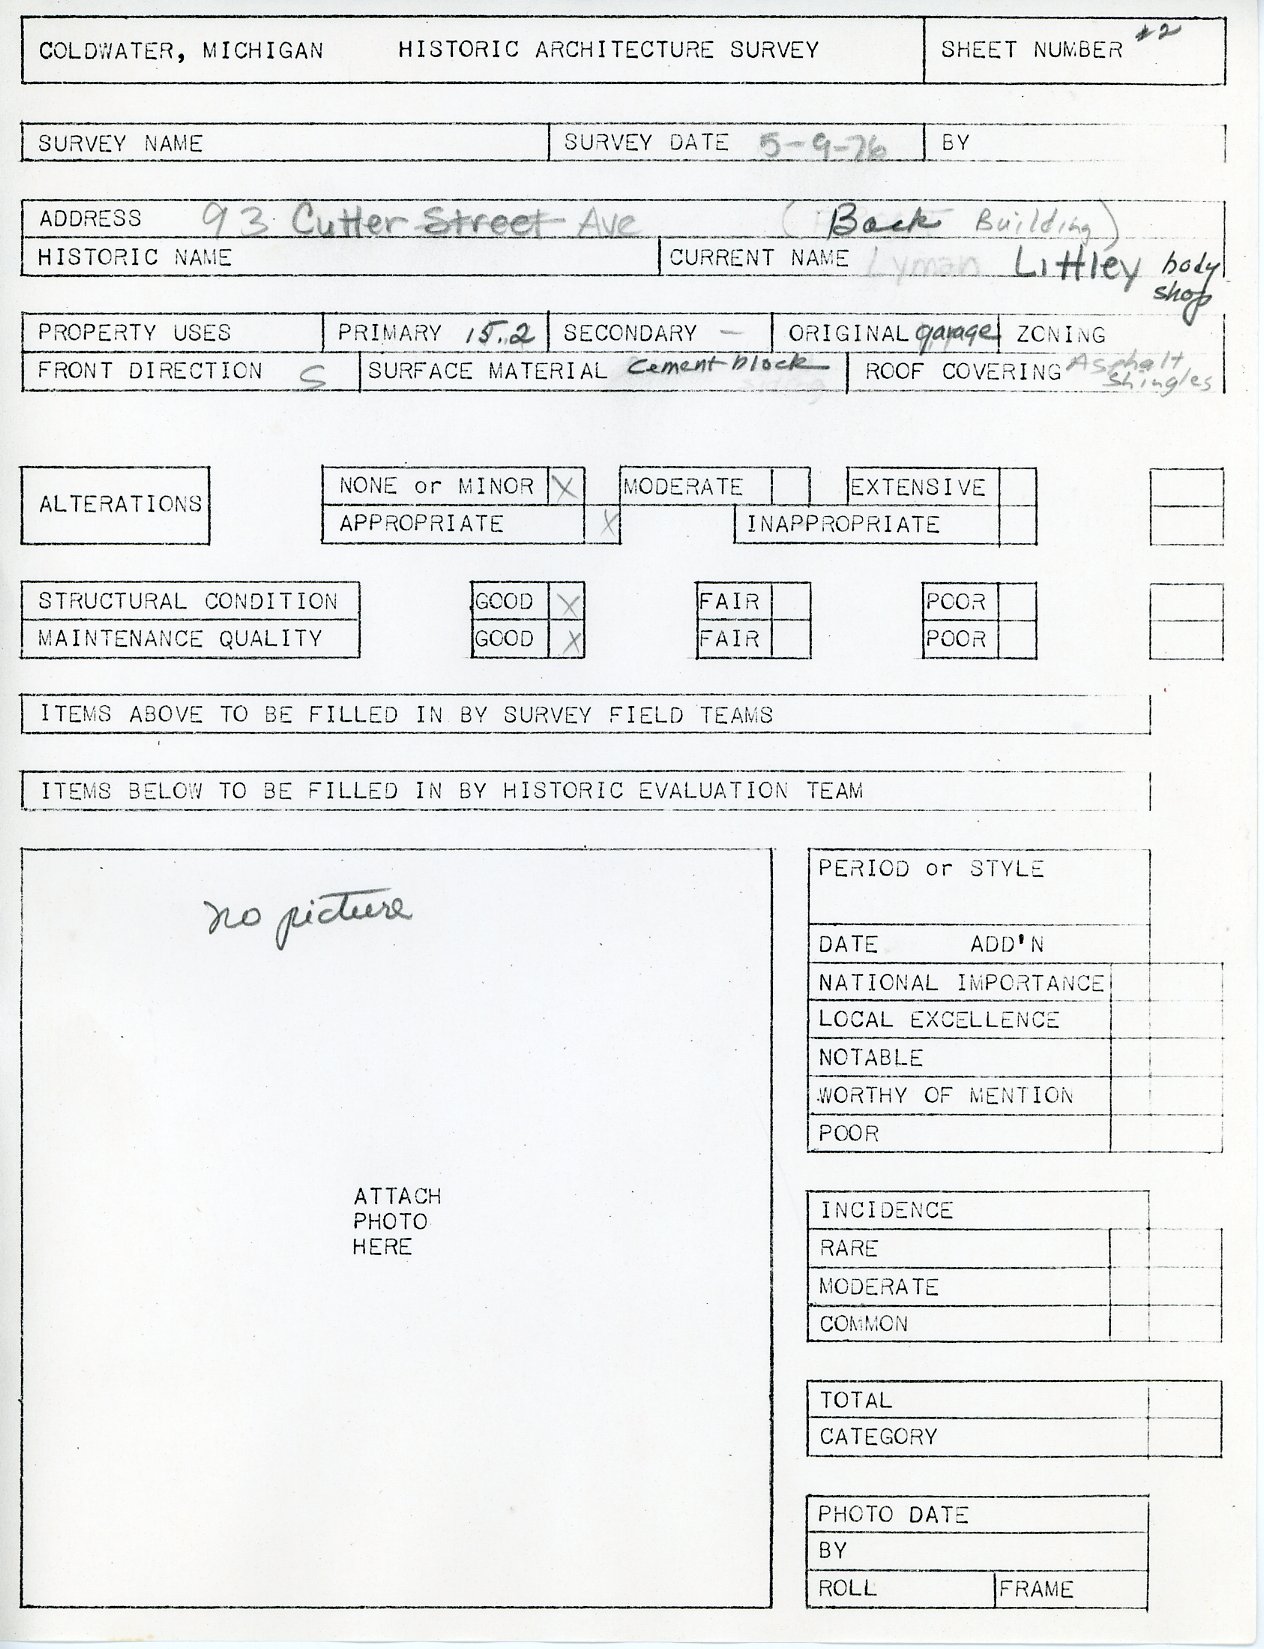 COLDWATER, MICHIGAN HISTORIC ARCHITECTURE SURVEY SHEET NUMBER #2
SURVEY NAME SURVEY DATE 5-9-76 BY
ADDRESS 93 Cutter Street Ave (Back Building)
HISTORIC NAME CURRENT NAME Lyman Littley body shop
PROPERTY USES PRIMARY 15.2 SECONDARY - ORIGINAL garage ZONING
FRONT DIRECTION S SURFACE MATERIAL Cement block siding ROOF COVERING Asphalt Shingles
ALTERATIONS
NONE or MINOR X MODERATE EXTENSIVE
APPROPRIATE X INAPPROPRIATE
STRUCTURAL CONDITION GOOD X FAIR POOR
MAINTENANCE QUALITY GOOD X FAIR POOR
ITEMS ABOVE TO BE FILLED IN BY SURVEY FIELD TEAMS
ITEMS BELOW TO BE FILLED IN BY HISTORIC EVALUATION TEAM
no picture
ATTACH
PHOTO
HERE
PERIOD or STYLE
DATE ADD'N
NATIONAL IMPORTANCE
LOCAL EXCELLENCE
NOTABLE
WORTHY OF MENTION
POOR
INCIDENCE
RARE
MODERATE
COMMON
TOTAL
CATEGORY
PHOTO DATE
BY
ROLL FRAME